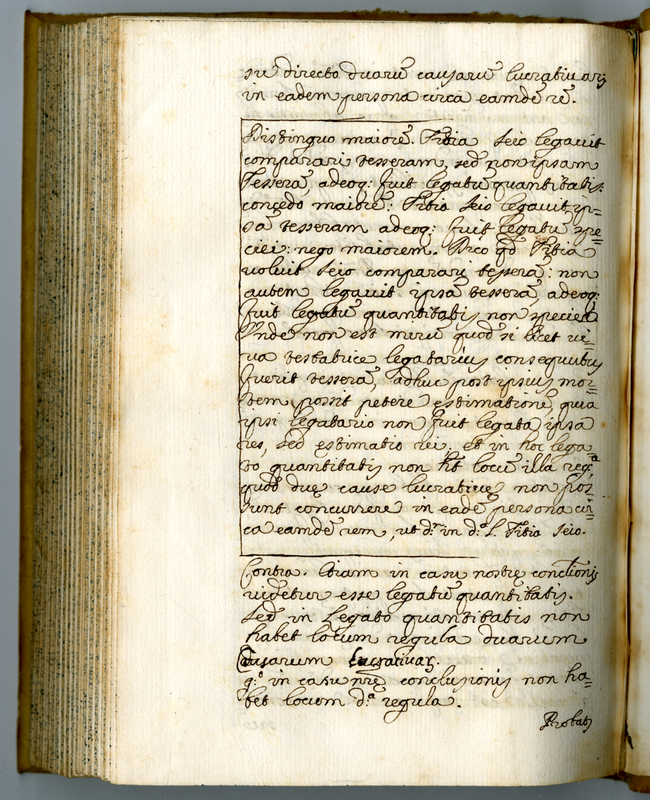 su directo duarũ causarũ lucrativarȝ
in eadem persona circa eamdẽ rẽ.
Distinguo maiorẽ. Titia Seio legavit
comparari tesseram, sed non ipsam
Tesserã, adeoq: fuit legatũ quantitatis:
concedo maiorẽ: Titia Seio legavit ip=
sã tesseram adeoq: fuit legatũ spe=
ciei: nego maiorem. Dico qđ Titia
voluit Seio comparari tesserã: non
autem legavit ipsã tesserã, adeoq:
fuit legatũ quantitatis non speciei.
Unde non est mirũ quod si licet vi=
va testatrice legatarius consequutus
fuerit tesserã, adhuc post ipsius mor=
tem possit petere estimationẽ, quia
ipsi legatario non fuit legata ipsa
res, sed ęstimatio rei. Et in hoc lega=
to quantitatis non ht̃ locũ illa regᵃ,
quod duę cause lucrativę non pos=
sunt concurrere in eadẽ persona cir=
ca eamdẽ rem, ut dʳ in dᵃ L. Titia Seio.
Contra. Etiam in casu nostrę conclionis
videtur esse legatũ quantitatis.
Sed in Legato quantitatis non
habet locum regula duarum
Causarum Lucrativar.
gº in casu nrę conclusionis non ha=
bet locum dᵃ regula.
Probatȝ